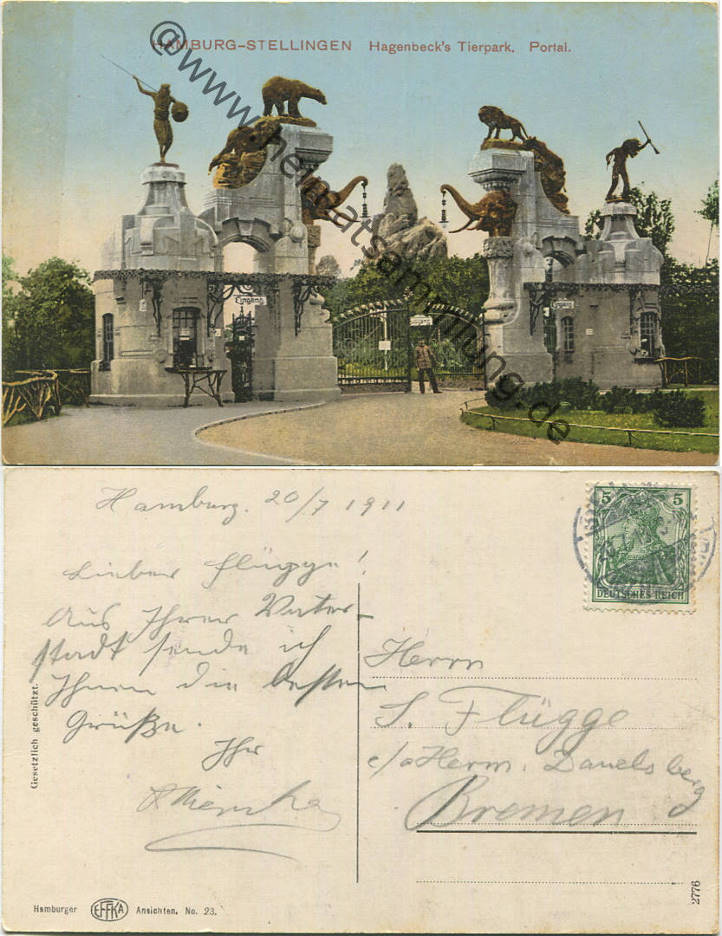 HAMBURG-STELLINGEN Hagenbeck's Tierpark. Portal.
©www.heimatsammlung.de
Eingang
Hamburg. 20/7 1911
Lieber Flügge!
Aus Ihrer Vater-
stadt sende ich
Ihnen die besten
Grüße.
Ihr
5 5
DEUTSCHES REICH
Herrn
S. Flügge
c/o Herrn. Danelsberg
Bremen
Gesetzlich geschützt.
Hamburger EFFKA Ansichten. No. 23.
2776